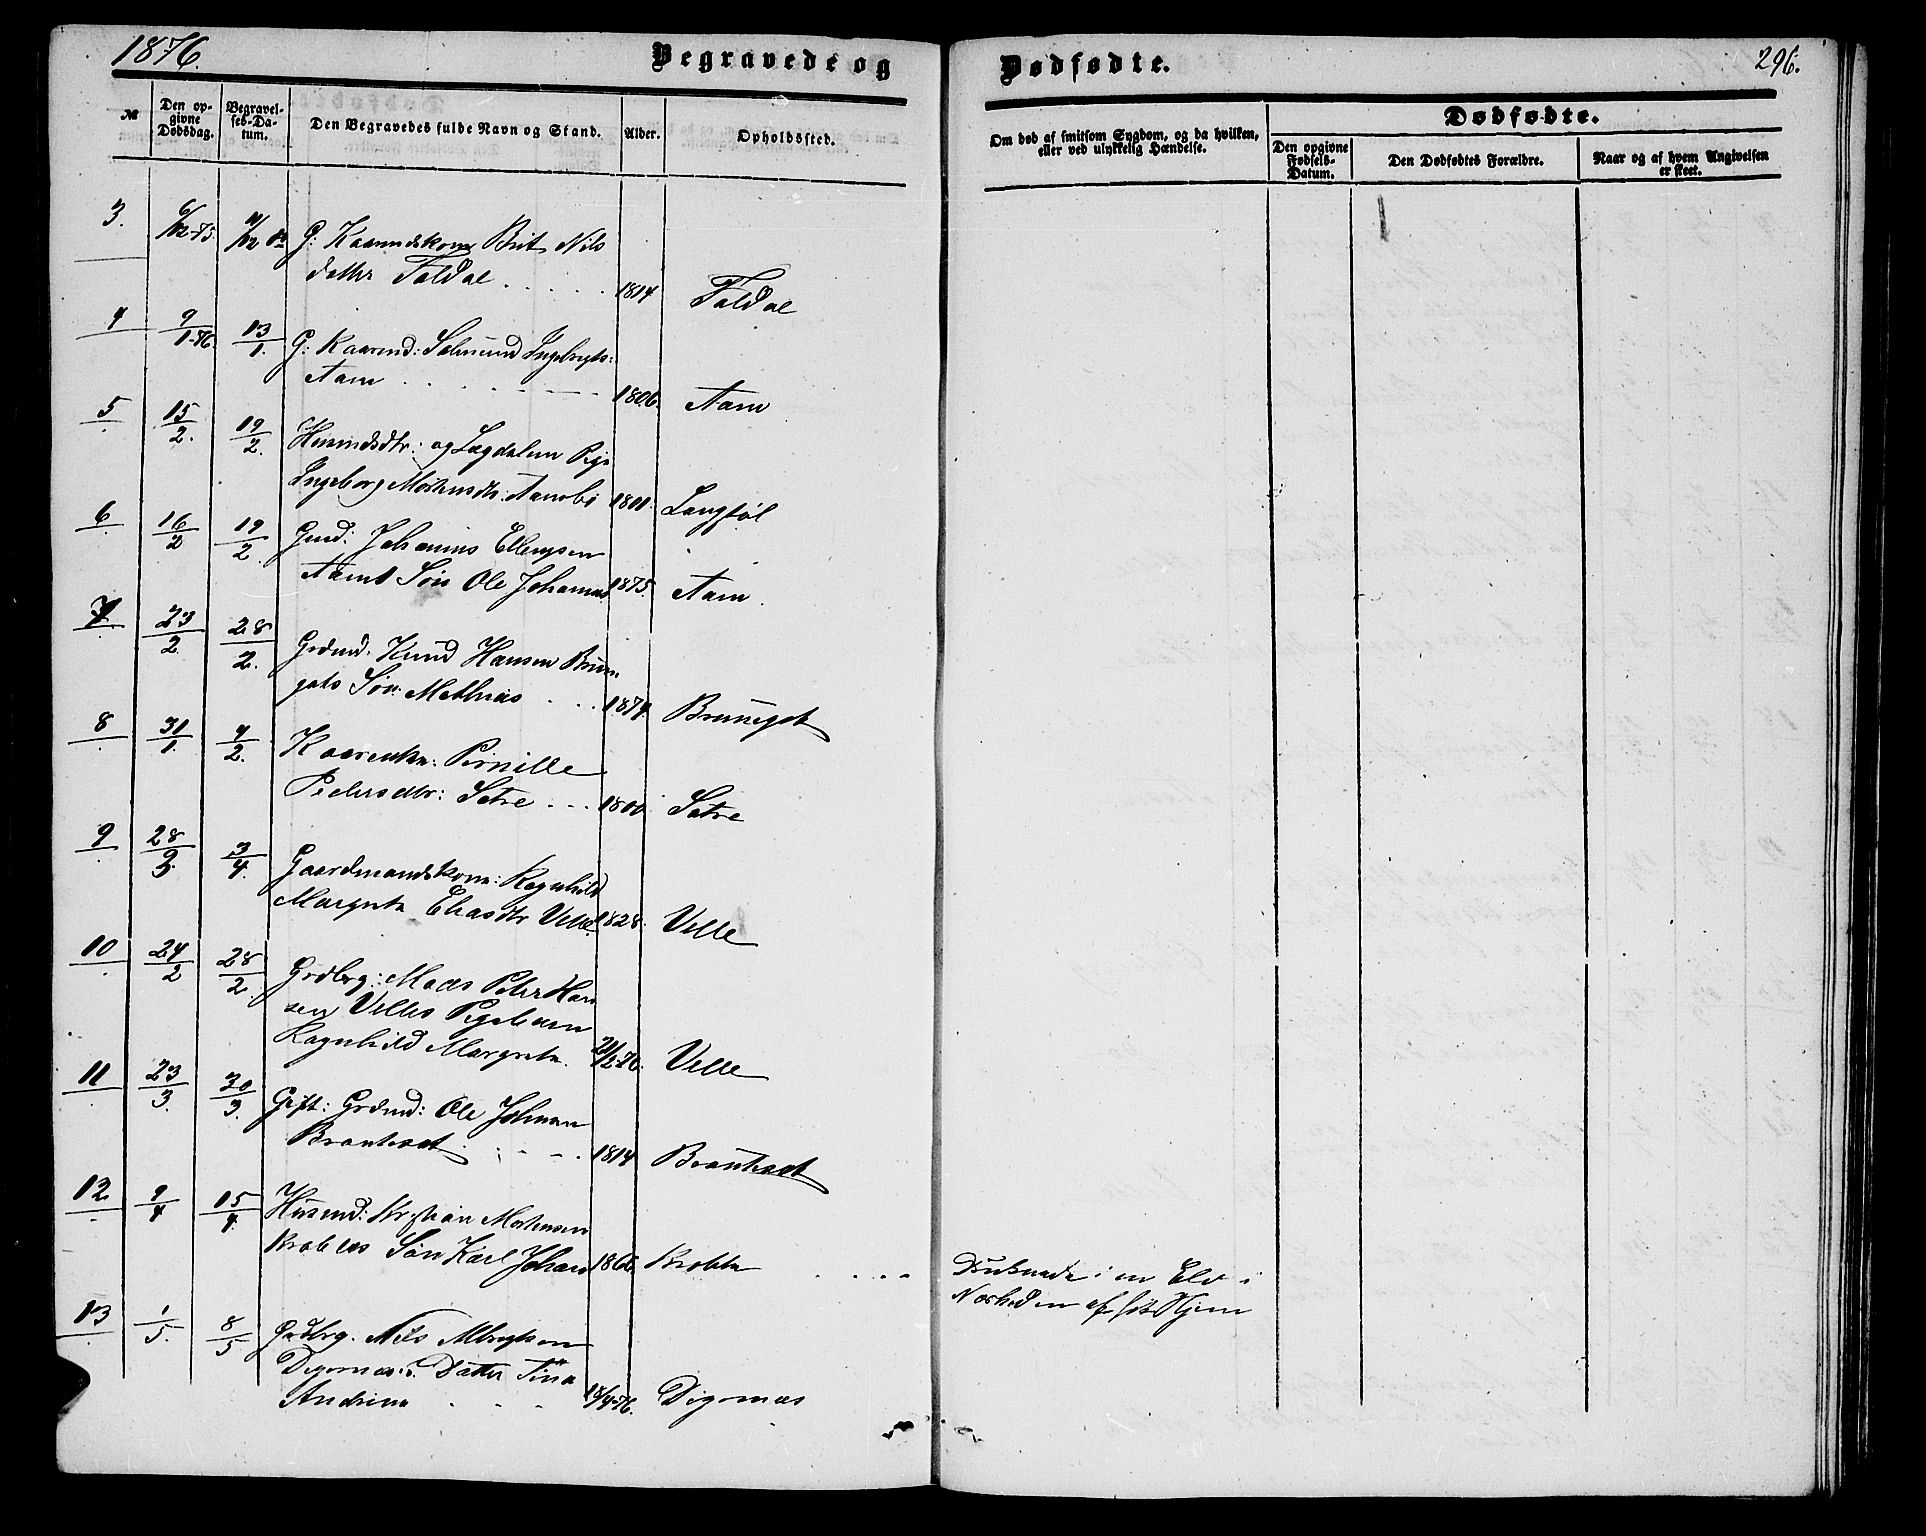 1876.
Begravede og
Dødfødte.
296.
№
Den opgivne Dødsdag.
Begravelses-Datum.
Den Begravedes fulde Navn og Stand.
Alder.
Opholdssted.
Om død af smitsom Sygdom, og da hvilken, eller ved ulykkelig Hændelse.
Dødfødte.
Den opgivne Fødsels-Datum.
Den Dødfødtes Forældre.
Naar og af hvem Angivelsen er skeet.
3. 6/12-75. G: Kaarmdskone Brit Nils
datter Foldal 1814 Foldal
4 9/1-76. 13/1. G: Kaarmd: Salmund Ingebrigts:
Aam 1806. Aam
5 15/2. 19/2. Husmdsdtr: og Lægdslem Pige
Ingeborg Mortensdtr: 1801. Langsøl
6 16/2 19/2 Grmd: Johannes Ellingsen
Aams Søn Ole Johannes 1875. Aam.
7. 23/2 28/2. Grdmd. Knud Hansen Brune
gots Søn: Mathias 1874. Brunegot
8 31/1. 4/2. Kaarenke: Pernille
Pedersdtr: Sætre 1800. Sætre
9 28/3. 3/4. Gaardmandskone: Ragnhild
Margreta Eliasdtr Velle 1828. Velle
10 24/2 28/2. Grdbrg: Mads Peter Han
sen Velles Pigebarn
Ragnhild Margreta. 21/2-76. Velle
11 23/3. 30/3. Gift: Grdmd: Ole Johnsen
Brauteset 1814 Brauteset
12. 9/4 15/4. Husmd: Kristian Mortensen
Krabbes Søn Karl Johan 1866. Krabbe Druknede i en Elv i
Nærheden af sit Hjem
13 1/5. 8/5 Grdbrg. Nils Albrigtsen
Digernæs: Datter Tina
Andrina 18/4-76. Digernæs